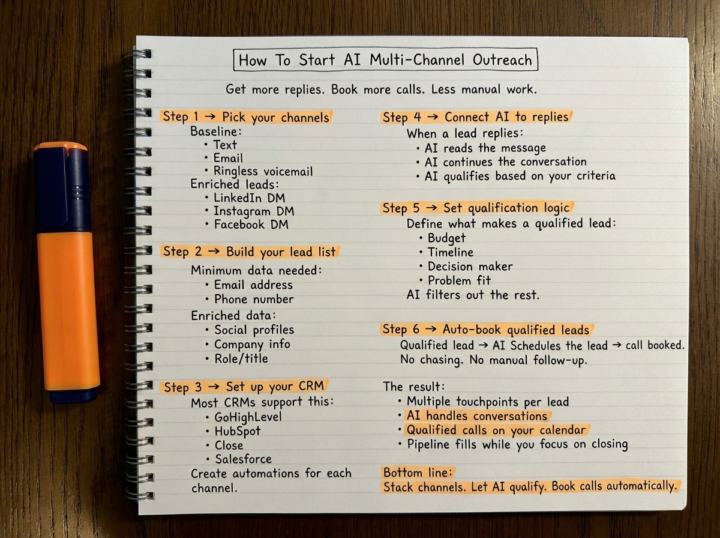 How To Start AI Multi-Channel Outreach
Get more replies. Book more calls. Less manual work.
Step 1 → Pick your channels
Baseline:
• Text
• Email
• Ringless voicemail
Enriched leads:
• LinkedIn DM
• Instagram DM
• Facebook DM
Step 2 → Build your lead list
Minimum data needed:
• Email address
• Phone number
Enriched data:
• Social profiles
• Company info
• Role/title
Step 3 → Set up your CRM
Most CRMs support this:
• GoHighLevel
• HubSpot
• Close
• Salesforce
Create automations for each
channel.
Step 4 → Connect AI to replies
When a lead replies:
• AI reads the message
• AI continues the conversation
• AI qualifies based on your criteria
Step 5 → Set qualification logic
Define what makes a qualified lead:
• Budget
• Timeline
• Decision maker
• Problem fit
AI filters out the rest.
Step 6 → Auto-book qualified leads
Qualified lead → AI Schedules the lead → call booked.
No chasing. No manual follow-up.
The result:
• Multiple touchpoints per lead
• AI handles conversations
• Qualified calls on your calendar
• Pipeline fills while you focus on closing
Bottom line:
Stack channels. Let AI qualify. Book calls automatically.